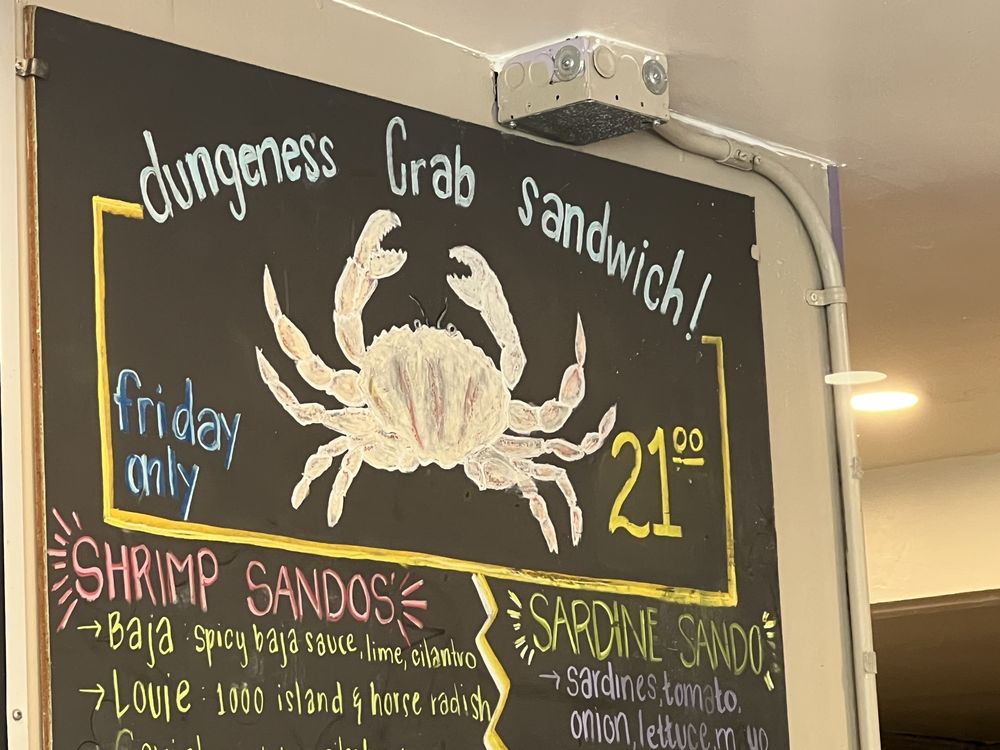 dungeness Crab sandwich!
friday
only
21⁰⁰
SHRIMP SANDOS'
→ Baja : spicy baja sauce, lime, cilantro
→ Louie : 1000 island & horse radish
SARDINE SANDO
→ sardines, tomato,
onion, lettuce,